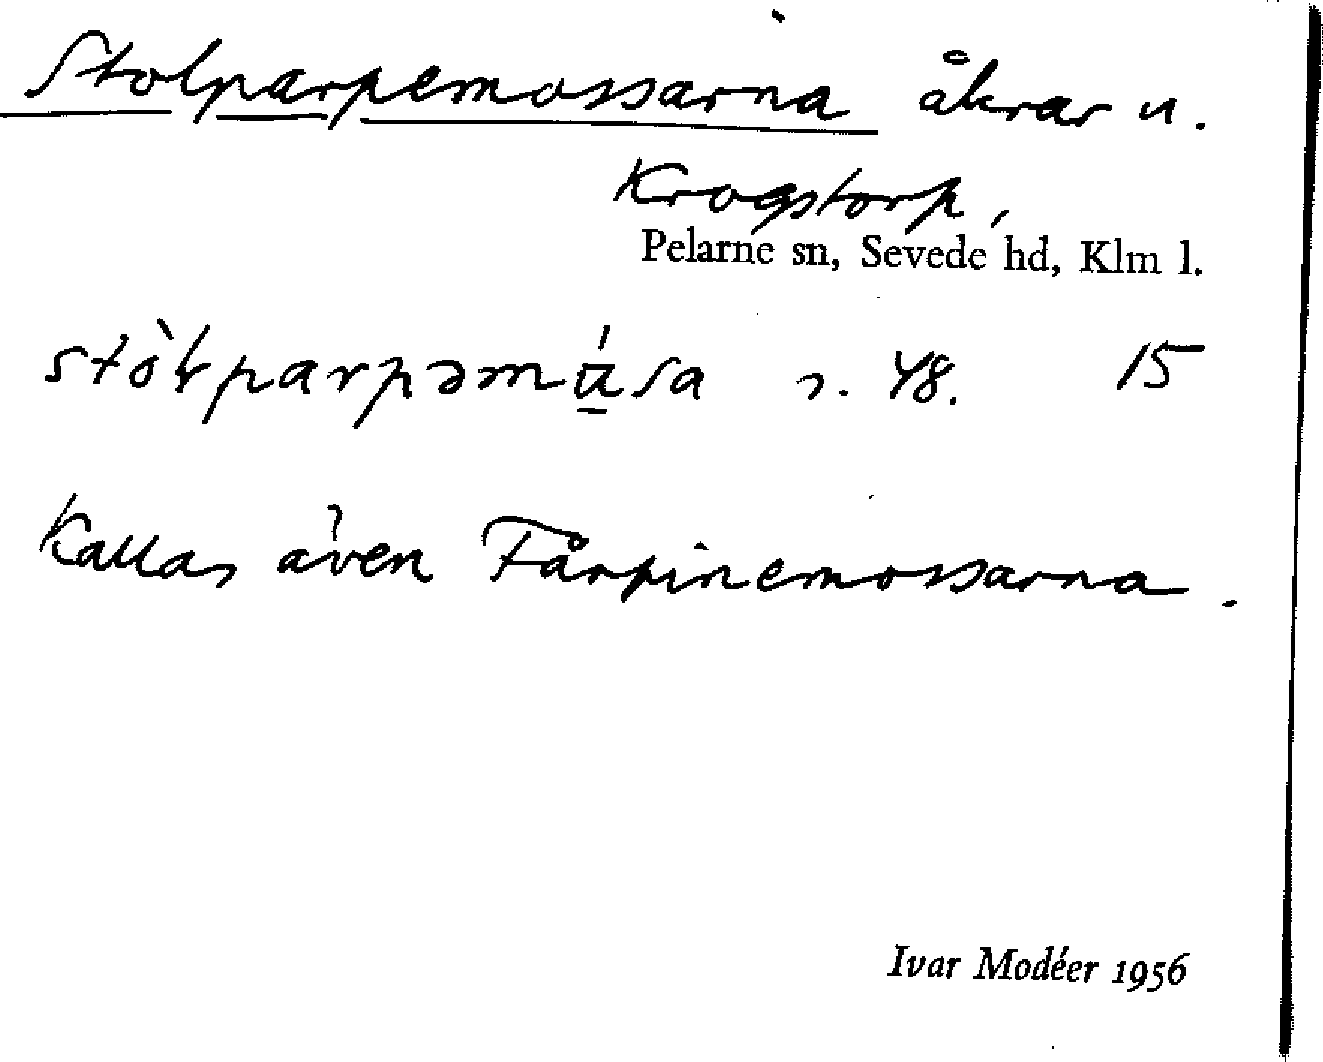 Stolparpemossarna åkrar u.
Krogstorp,
Pelarne sn, Sevede hd, Klm l.
s. 48. 15
Kallas även Fårpinemossarna.
Ivar Modéer 1956